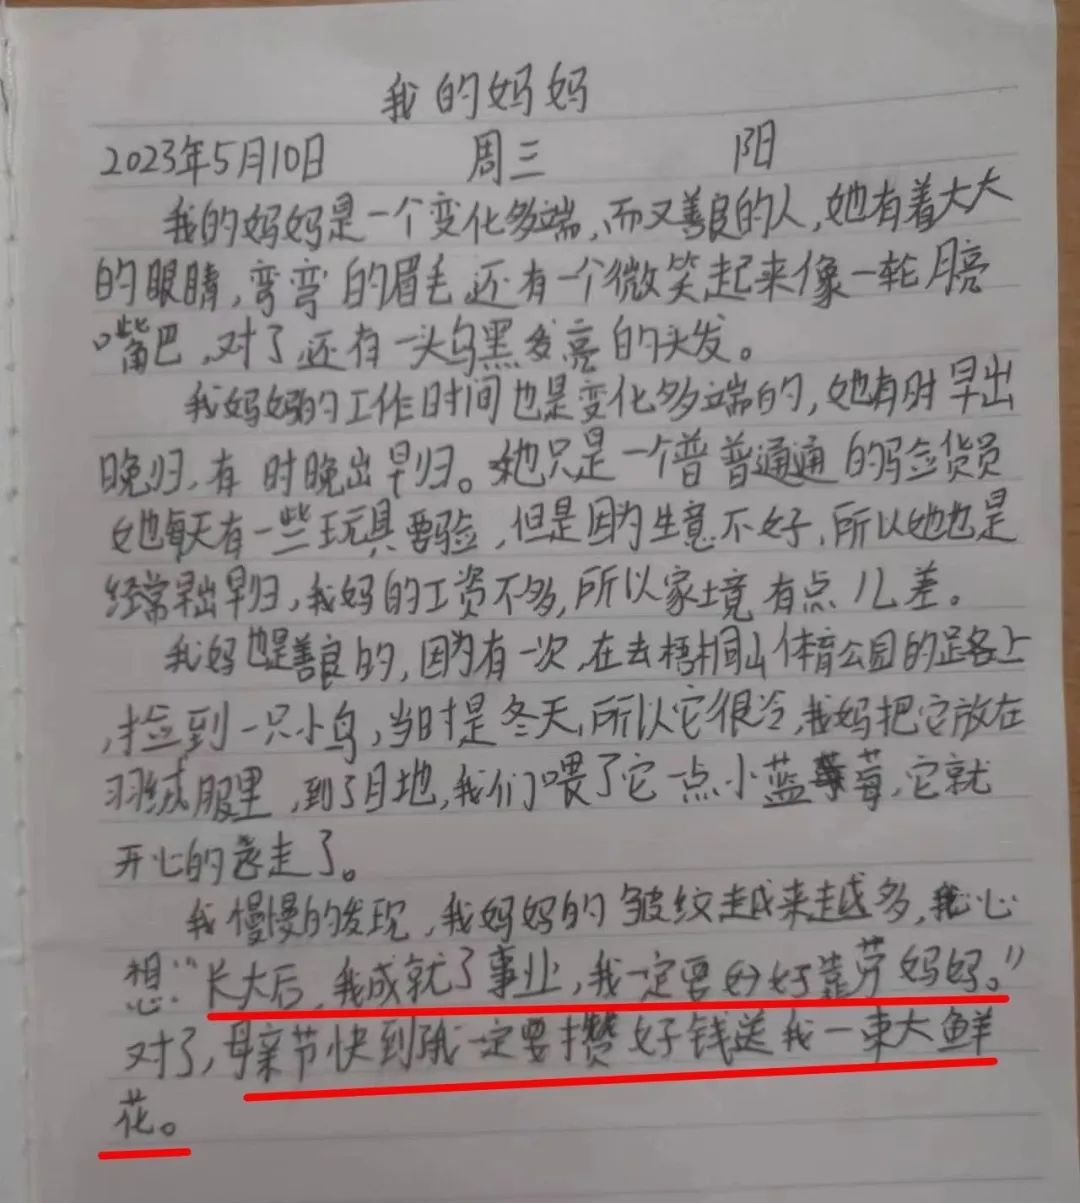 我的妈妈
2023年5月10日 周三 阳
我的妈妈是一个变化多端,而又善良的人,她有着大大
的眼睛,弯弯的眉毛还有一个微笑起来像一轮月亮
嘴巴,对了,还有一头乌黑发亮的头发。
我妈妈的工作时间也是变化多端的,她有时早出
晚归,有时晚出早归。她只是一个普普通通的验货员
她每天有一些玩具要验,但是因为生意不好,所以她也是
经常早出早归,我妈的工资不多,所以家境有点儿差。
我妈也是善良的,因为有一次,在去梧桐山体育公园的路上
,捡到一只小鸟,当时是冬天,所以它很冷,我妈把它放在
羽绒服里,到了目地,我们喂了它一点小蓝莓,它就
开心的走了。
我慢慢的发现,我妈妈的皱纹越来越多,我心
想:“长大后,我成就了事业,我一定要好好孝劳妈妈。”
对了,母亲节快到我一定要攒好钱送我一束大鲜
花。